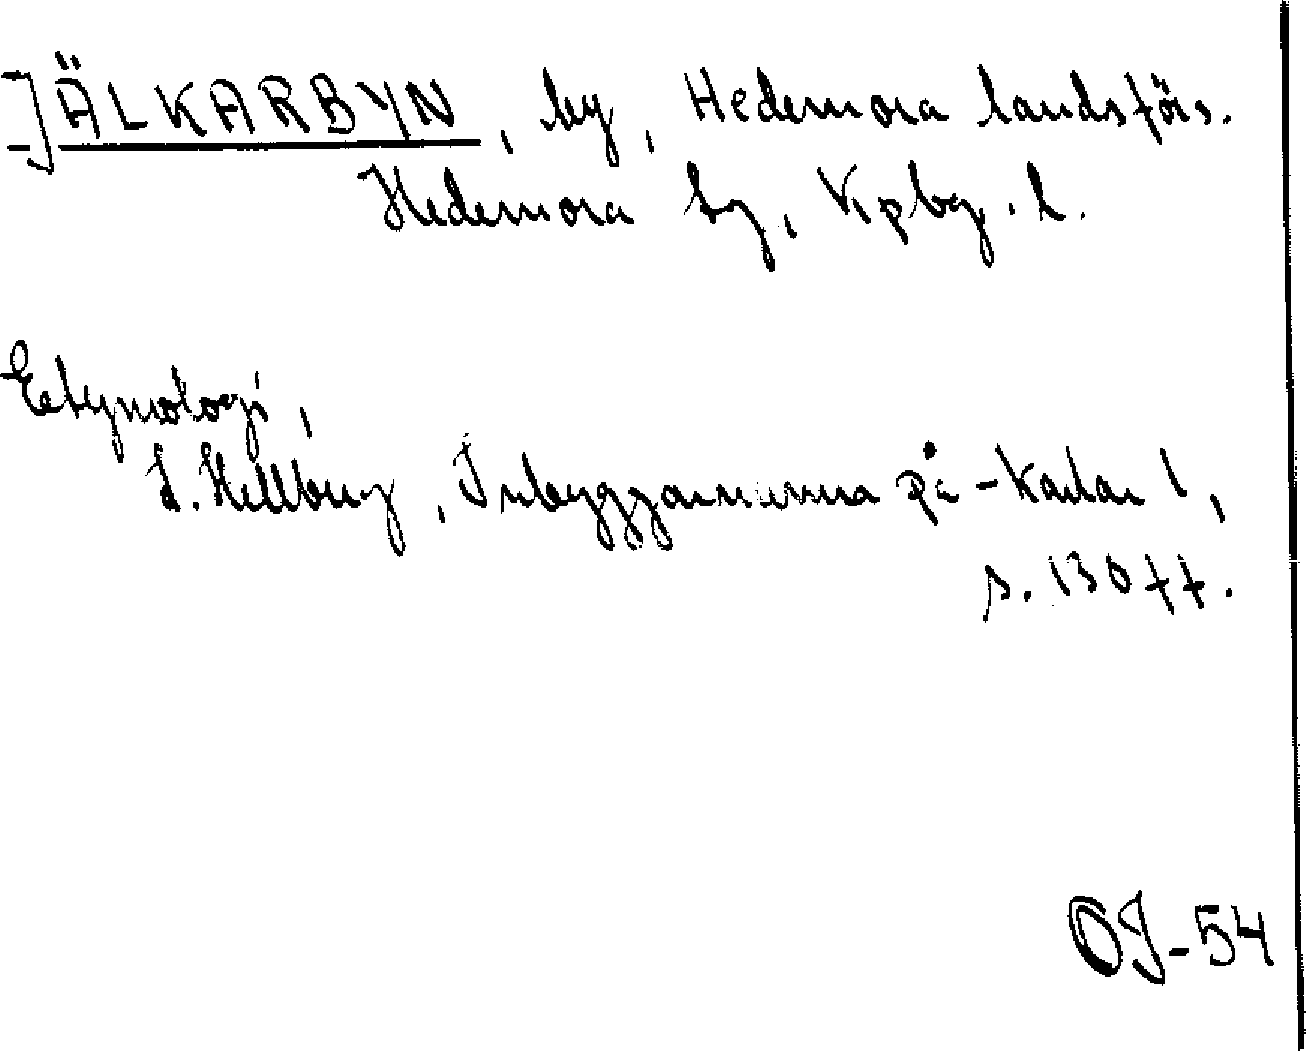 JÄLKARBYN, by, Hedemora landsförs.
Hedemora sg, Kpbg. l.
Etymologi,
L. Hellberg, Inbyggarnamna på -karlar 1,
s. 130 ff.
OJ-54